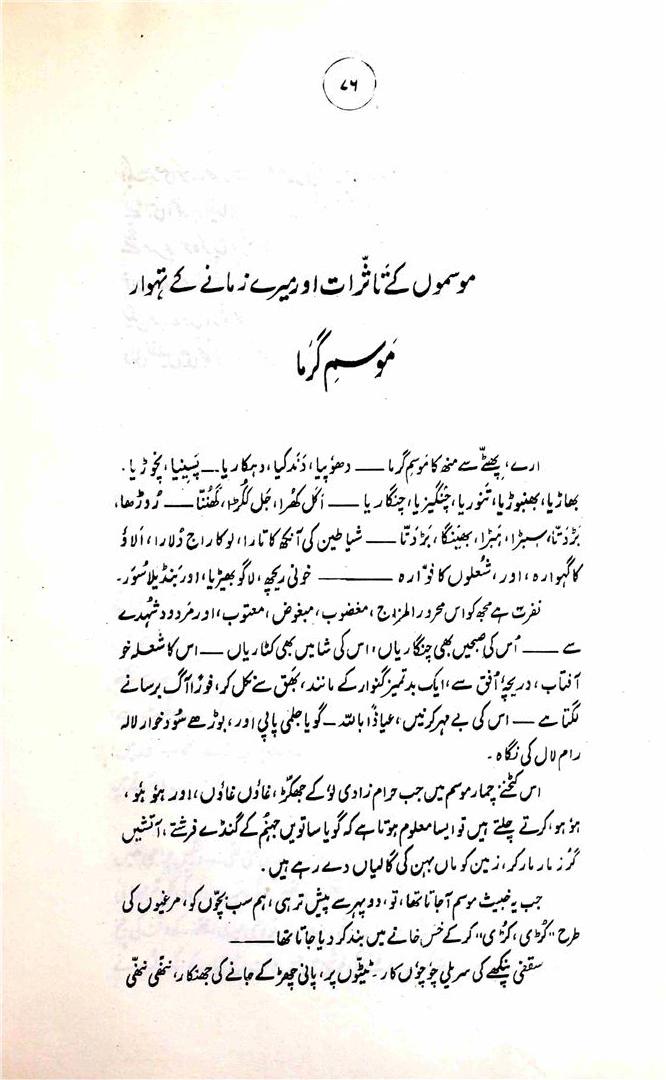 ۷۶
موسموں کے تاثّرات اور میرے زمانے کے تہوار
مَوسمِ گَرما
ارے، پھٹّے سے منھ کا مَوسمِ گرما —— دھوُپیا، دَندکیا، دہکاریا — پَسینیا، نچوڑیا۔
بھاڑیا، بھنبوڑیا، تنوریا، چنگیزیا، چنگاریا —— اَکل کھرا، جَل ککڑا، گھُنتا —— رُودڑھا،
بڑدتّا، سبڑا، ہبڑا، بھینگا، بڑدتا —— شیاطین کی آنکھ کا تارا، لوُکا راج دُلارا، الاؤ
کا گہوارہ، اور، شُعلوں کا فوّارہ ——— خونی ریچھ، لاگوُ بھیڑیا، اور بَنڈیلا سوُر۔
نفرت ہے مجھ کو اس محرور المزاج، مغضوب، مبغوض، معتوب، اور مَردود شُہدے
سے —— اُس کی صبحیں بھی چنگاریاں، اس کی شامیں بھی کٹاریاں — اس کا شعلہ خو
آفتاب، دریچۂ اُفق سے، ایک بد تمیز گنوار کے مانند، بھَق سے نکل کر، فوراً آگ برسانے
لگتا ہے — اس کی بے مہر کرنیں، عیاذاً باللہ — گویا جلمی پاپی اور، بوڑھے سوُد خوار لالہ
رام لال کی نگاہ۔
اس کٹخنے چمار موسم میں جب حرام زادی لوُ کے جھکّڑ، غاؤں غاؤں، اور ہوُ ہوُ،
ہوُ ہو، کرتے چلتے ہیں تو ایسا معلوم ہوتا ہے کہ گویا ساتویں جہنّم کے گنڈے فرشتے، آتشیں
گُرز مار مار کر، زمین کو ماں بہن کی گالیاں دے رہے ہیں۔
جب یہ خبیث موسم آجاتا تھا، تو، دوپہر سے پیش تر ہی، ہم سب بچّوں کو، مرغیوں کی
طرح "کُڑی، کڑی" کر کے خس خانے میں بند کر دیا جاتا تھا ——
سقفی پنکھے کی سریلی چوُ چوُں کار — ٹیٹوں پر، پانی چھڑکے جانے کی جھنکار، ننھّی ننھّی